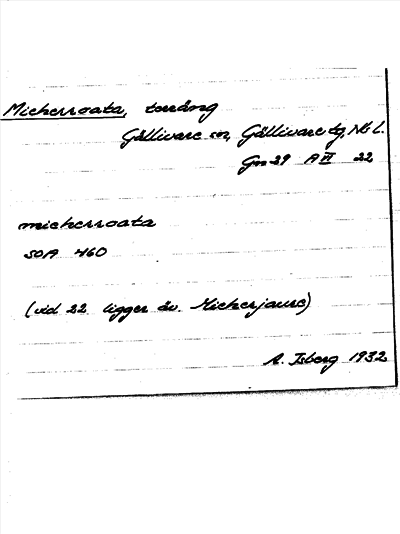 Micherroata, terräng
Gällivare sn, Gällivare tg, Nb L.
Gm 29 A VI 22
micherroata
SOA 460
(vid 22 ligger äv. Micherjaure)
A. Isberg 1932